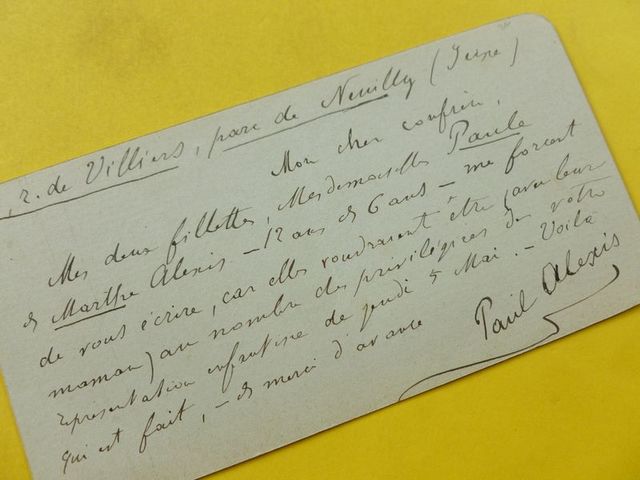 , r. de Villiers, parc de Neuilly (Seine)
Mon cher confrère,
Mes deux fillettes, Mesdemoiselles Paule
et Marthe Alexis – 12 ans et 6 ans – me forcent
de vous écrire, car elles voudraient être (avec leur
maman) au nombre des privilégiées de votre
représentation enfantine de jeudi 5 Mai. – Voilà
qui est fait, – et merci d'avance
Paul Alexis